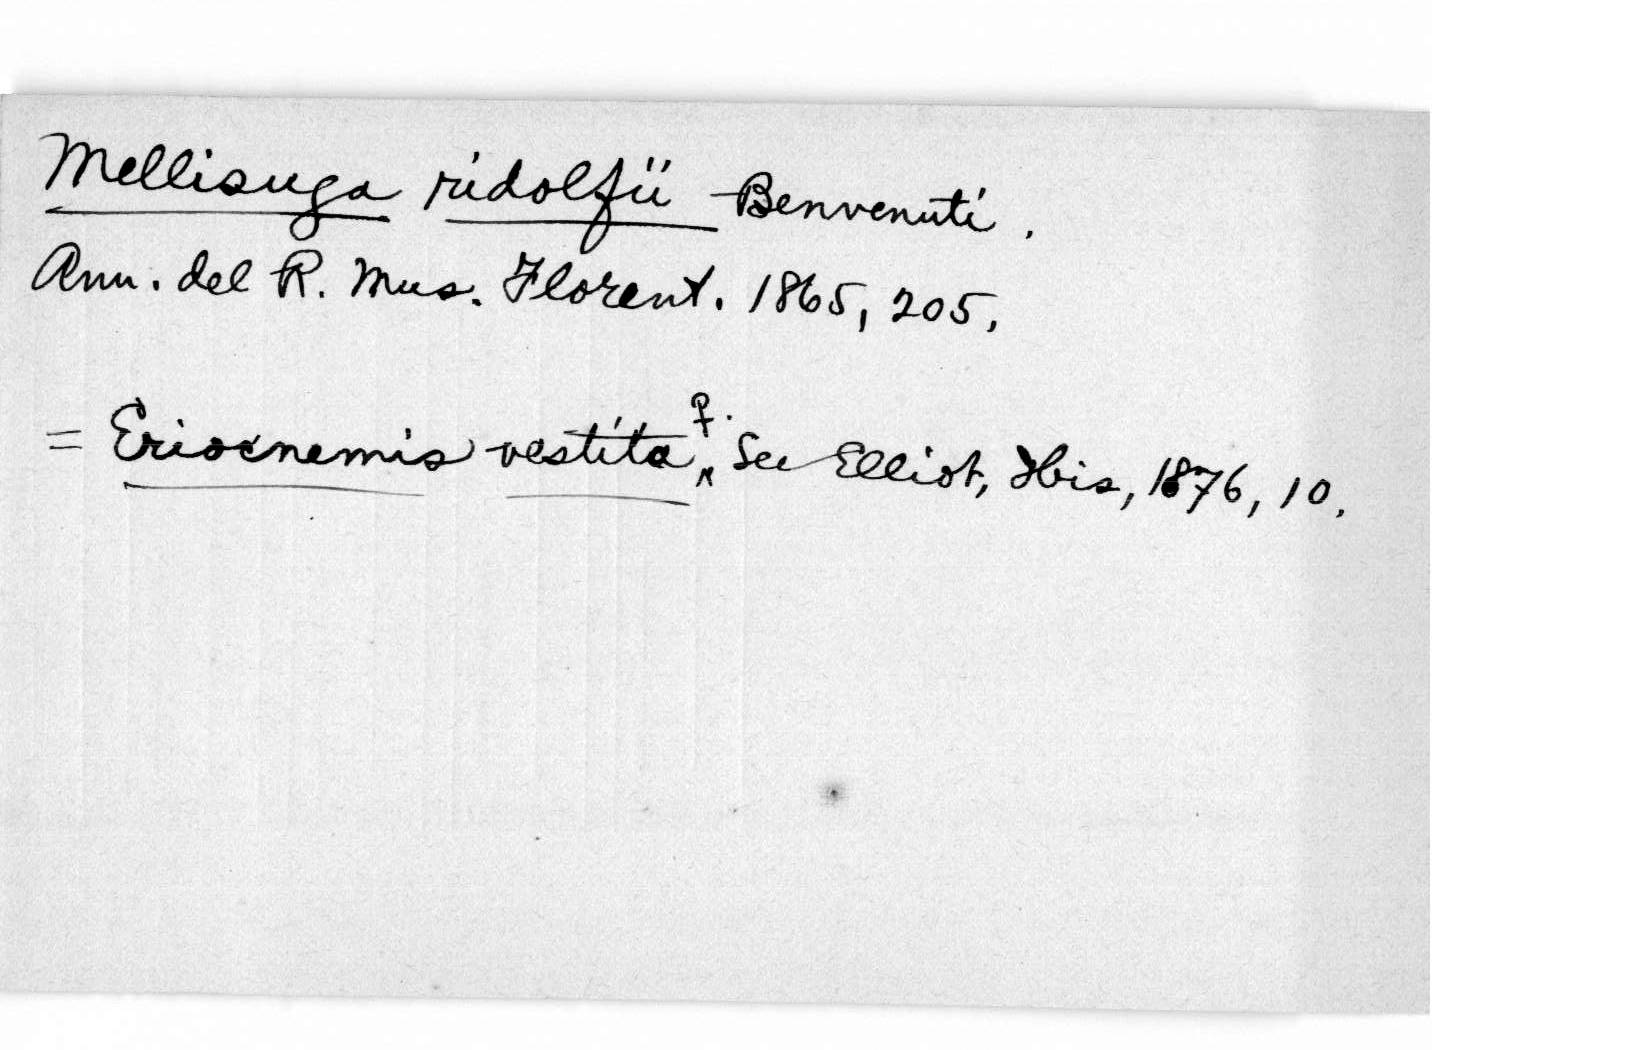 Mellisuga ridolfii Benvenuti.
Ann. del R. Mus. Florent. 1865, 205.
= Eriocnemis vestita ♀. See Elliot, Ibis, 1876, 10.